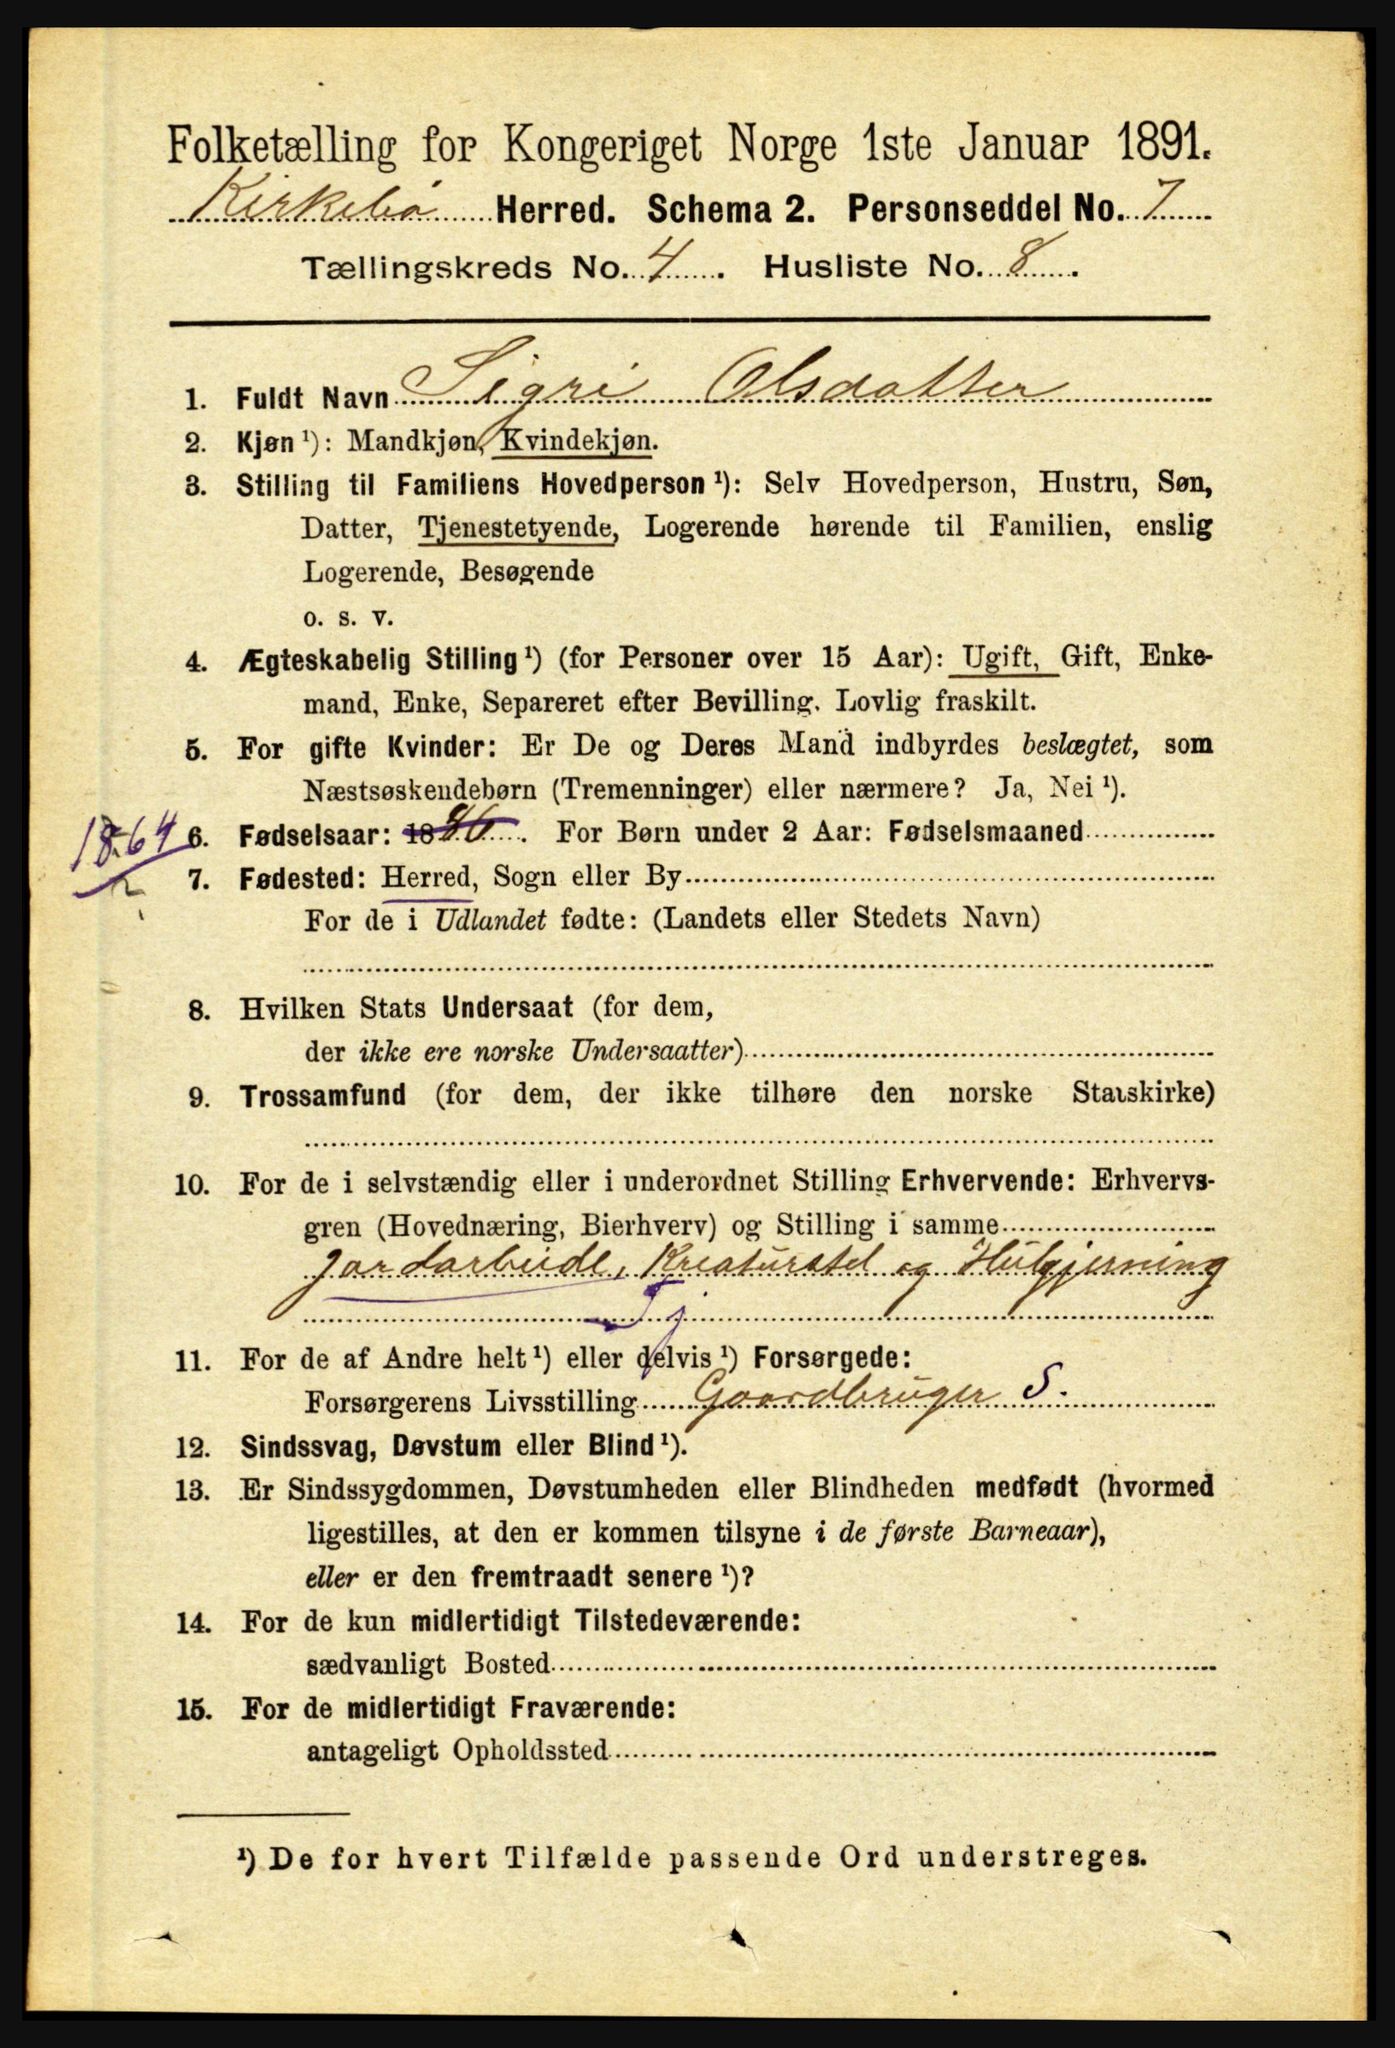 Folketælling for Kongeriget Norge 1ste Januar 1891.
Kirkebø Herred. Schema 2. Personseddel No. 7
Tællingskreds No. 4. Husliste No. 8.
1. Fuldt Navn Sigri Olsdatter
2. Kjøn ¹): Mandkjøn, Kvindekjøn.
3. Stilling til Familiens Hovedperson ¹): Selv Hovedperson, Hustru, Søn,
Datter, Tjenestetyende, Logerende hørende til Familien, enslig
Logerende, Besøgende
o. s. v.
4. Ægteskabelig Stilling ¹) (for Personer over 15 Aar): Ugift, Gift, Enke-
mand, Enke, Separeret efter Bevilling. Lovlig fraskilt.
5. For gifte Kvinder: Er De og Deres Mand indbyrdes beslægtet, som
Næstsøskendebørn (Tremenninger) eller nærmere? Ja, Nei ¹).
1864 6. Fødselsaar: 1886. For Børn under 2 Aar: Fødselsmaaned
7. Fødested: Herred, Sogn eller By
For de i Udlandet fødte: (Landets eller Stedets Navn)
8. Hvilken Stats Undersaat (for dem,
der ikke ere norske Undersaatter)
9. Trossamfund (for dem, der ikke tilhøre den norske Statskirke)
10. For de i selvstændig eller i underordnet Stilling Erhvervende: Erhvervs-
gren (Hovednæring, Bierhverv) og Stilling i samme
Jordarbeide, Kreaturstel og Husgjerning
Tj
11. For de af Andre helt ¹) eller delvis ¹) Forsørgede:
Forsørgerens Livsstilling Gaardbruger S.
12. Sindssvag, Døvstum eller Blind ¹).
13. Er Sindssygdommen, Døvstumheden eller Blindheden medfødt (hvormed
ligestilles, at den er kommen tilsyne i de første Barneaar),
eller er den fremtraadt senere ¹)?
14. For de kun midlertidigt Tilstedeværende:
sædvanligt Bosted
15. For de midlertidigt Fraværende:
antageligt Opholdssted
¹) De for hvert Tilfælde passende Ord understreges.